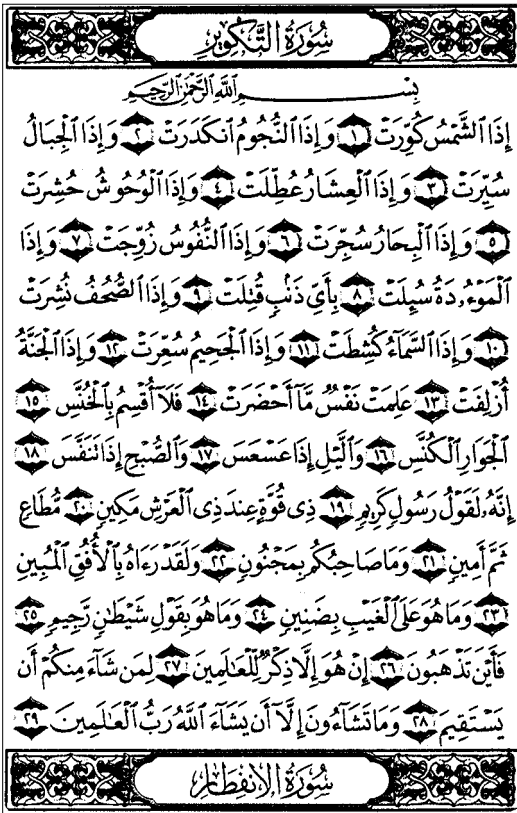 سُورَةُ التَّكْوِيرِ
بِسْمِ ٱللَّهِ ٱلرَّحْمَٰنِ ٱلرَّحِيمِ
إِذَا ٱلشَّمْسُ كُوِّرَتْ ١ وَإِذَا ٱلنُّجُومُ ٱنكَدَرَتْ ٢ وَإِذَا ٱلْجِبَالُ
سُيِّرَتْ ٣ وَإِذَا ٱلْعِشَارُ عُطِّلَتْ ٤ وَإِذَا ٱلْوُحُوشُ حُشِرَتْ
٥ وَإِذَا ٱلْبِحَارُ سُجِّرَتْ ٦ وَإِذَا ٱلنُّفُوسُ زُوِّجَتْ ٧ وَإِذَا
ٱلْمَوْءُۥدَةُ سُئِلَتْ ٨ بِأَىِّ ذَنۢبٍ قُتِلَتْ ٩ وَإِذَا ٱلصُّحُفُ نُشِرَتْ
١٠ وَإِذَا ٱلسَّمَآءُ كُشِطَتْ ١١ وَإِذَا ٱلْجَحِيمُ سُعِّرَتْ ١٢ وَإِذَا ٱلْجَنَّةُ
أُزْلِفَتْ ١٣ عَلِمَتْ نَفْسٌ مَّآ أَحْضَرَتْ ١٤ فَلَآ أُقْسِمُ بِٱلْخُنَّسِ ١٥
ٱلْجَوَارِ ٱلْكُنَّسِ ١٦ وَٱلَّيْلِ إِذَا عَسْعَسَ ١٧ وَٱلصُّبْحِ إِذَا تَنَفَّسَ ١٨
إِنَّهُۥ لَقَوْلُ رَسُولٍ كَرِيمٍ ١٩ ذِى قُوَّةٍ عِندَ ذِى ٱلْعَرْشِ مَكِينٍ ٢٠ مُّطَاعٍ
ثَمَّ أَمِينٍ ٢١ وَمَا صَاحِبُكُم بِمَجْنُونٍ ٢٢ وَلَقَدْ رَءَاهُ بِٱلْأُفُقِ ٱلْمُبِينِ
٢٣ وَمَا هُوَ عَلَى ٱلْغَيْبِ بِضَنِينٍ ٢٤ وَمَا هُوَ بِقَوْلِ شَيْطَٰنٍ رَّجِيمٍ ٢٥
فَأَيْنَ تَذْهَبُونَ ٢٦ إِنْ هُوَ إِلَّا ذِكْرٌ لِّلْعَٰلَمِينَ ٢٧ لِمَن شَآءَ مِنكُمْ أَن
يَسْتَقِيمَ ٢٨ وَمَا تَشَآءُونَ إِلَّآ أَن يَشَآءَ ٱللَّهُ رَبُّ ٱلْعَٰلَمِينَ ٢٩
سُورَةُ الإِنفِطَارِ